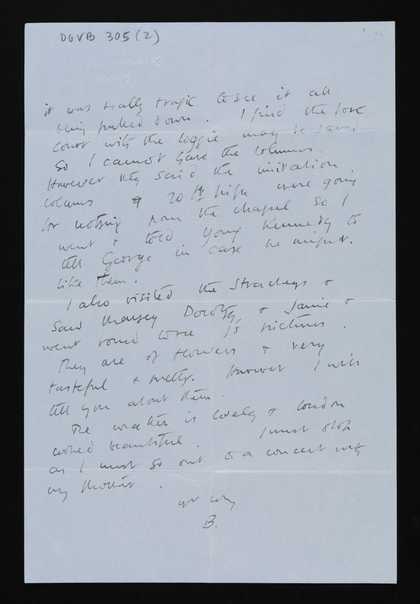 DGVB 305(2)
it was really tragic to see it all
being pulled down. I find the fore
court with the loggia may be
So I cannot have the columns.
However they said the imitation
colums 20 ft high were going
for nothing from the chapel so I
went & told young Kennedy to
tell George in case he might
like them.
I also visited the Stracheys &
Said Dorothy & Janie &
went round to see 's pictures.
They are of flowers & very
tasteful & pretty. However I will
tell you about them.
The weather is lovely & London
looked beautiful. I must stop
as I must go out to a concert with
my Mother.
B.